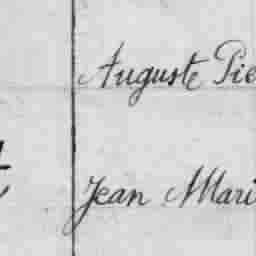 Auguste Pie
Jean Mari